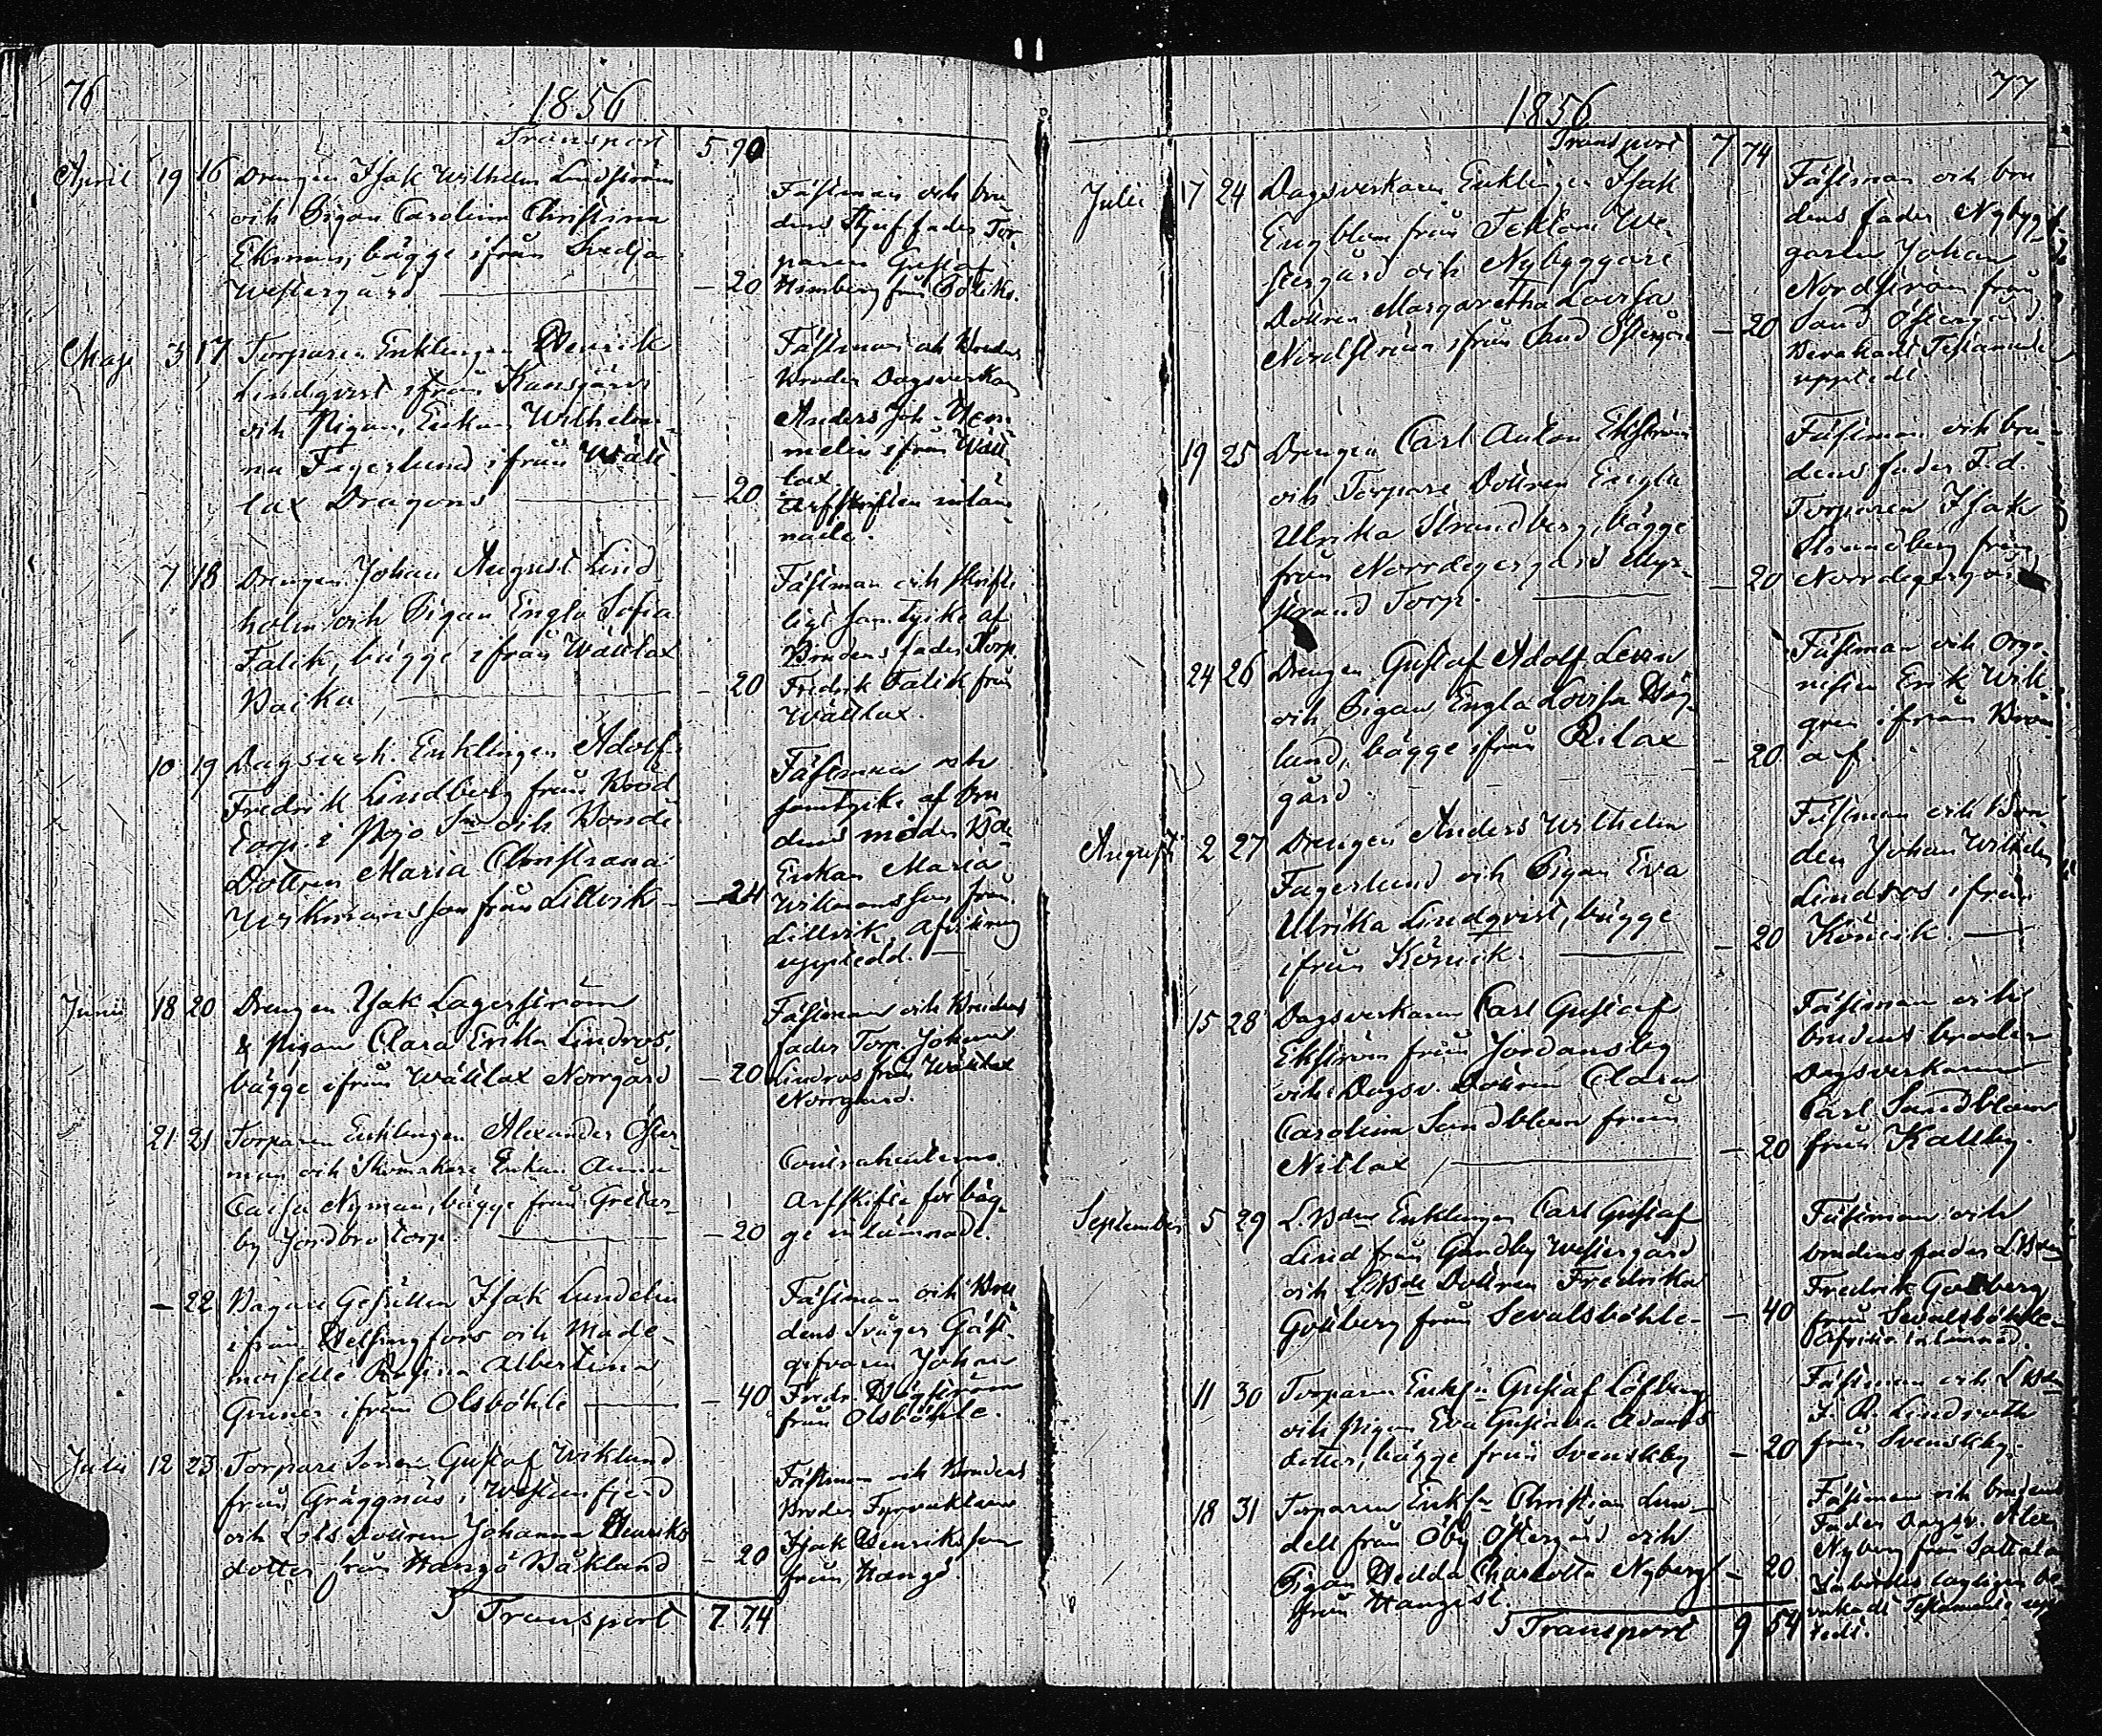 76
1856
Transport 5 90
April 19 16 Drengen Isak Wilhelm Lindström
och Pigan Carolina Christina
Ekman, bägge ifrån
Westergård — 20
Fästman och bru-
dens Styffader Tor-
paren Gustaf
från
Maji 3 17 Torparen Enklingen Henrik
Lindqvist ifrån
och Pigan, Enkan Wilhelmi-
na Fagerlund ifrån Wätt-
lax Dragons — 20
Fästman och Brudens
Broder Dagsverkar
Anders Joh.
ifrån Wätt-
lax.
Arfskiften inläm-
nade.
7 18 Drengen Johan August Lind-
holm och Pigan Engla Sofia
Falik, bägge ifrån Wättlax
Backa — 20
Fästman och skrift-
ligt samtycke af
Brudens fader Torp.
Fredrik Falik från
Wättlax.
10 19 Dagsverk. Enklingen Adolf
Fredrik Lindberg från
Torp i Pojo Sn och Bonde
Dottren Maria Christiana
Wikmansson från Lillvik — 24
Fästman och
samtycke af bru-
dens moder Bde
Enkan Maria
Wikmansson från
Lillvik, Afvittring
uppledd.
Junii 18 20 Drengen Isak Lagerström
& Pigan Clara Erika Lindros,
bägge ifrån Wättlax Norrgård — 20
Fästman och Brudens
fader Torp. Johan
Lindros från Wättlax
Norrgård.
21 21 Torparen Enklingen Alexander Öster-
man och Enkan Anna
Caisa Nyman, bägge från Gretar-
by Jordbro torp. — 20
Contrahenterne.
Arfskifte för bäg-
ge inlämnadt.
— 22 Bagare Gesällen Isak Lundelin
ifrån Helsingfors och Made-
moiselle Rosina Albertina
Grunér ifrån Olsböhle — 40
Fästman och Bru-
dens Svåger Gäst-
gifvaren Johan
Fredr. Högström
från Olsböhle.
Julii 12 23 Torpare Sonen Gustaf Wiklund
från Gräggnäs i Westanfjerd
och Lots Dottren Johanna Henriks
dotter från Hangö Båkland — 20
Fästman och Brudens
Broder Fyrvaktaren
Isak Henriksson
från Hangö.
Transport 7 74
77
1856
Transport 7 74
Julii 17 24 Dagsverkaren Enklingen Isak
Engblom från Tektom We-
stergård och Nybyggare
Dottren Margaretha Lovisa
Nordström ifrån Sand Östergård — 20
Fästman och bru-
dens fader Nybyg-
garen Johan
Nordström från
Sand Östergård.
Bevakadt Testamente
uppledt.
19 25 Drengen Carl Anton Ekström
och Torpare Dottren Engla
Ulrika Strandberg, bägge
från Norrdegergård Myr-
strand Torp. — 20
Fästman och bru-
dens fader F.d.
Torparen Isak
Strandberg från
Norrdegergård
24 26 Drengen Gustaf Adolf Leven
och Pigan Engla Lovisa Hög-
lund, bägge ifrån Rilax
gård. — 20
Fästman och Orga-
nisten Erik Wik-
gren ifrån Brom-
arf.
Augusti 2 27 Drengen Anders Wilhelm
Fagerlund och Pigan Eva
Ulrika Lindqvist, bägge
ifrån Könick. — 20
Fästman och Bon-
den Johan Wilhelm
Lindros ifrån
Könick.
15 28 Dagsverkaren Carl Gustaf
Ekström från Jordansby
och Dagsv. Dottren Clara
Carolina Sandblom från
Nitlax — 20
Fästman och
brudens broder
Dagsverkaren
Carl Sandblom
från Kallby.
September 5 29 L.Bden Enklingen Carl Gustaf
Lind från Gundby Westergård
och LBde Dottren Fredrika
Götberg från Sevalsböhle — 40
Fästman och
brudens fader L.Bden
Fredrik Götberg
från Sevalsböhle
11 30 Torparen Gustaf Löfberg
och Pigan Eva Gustava Adams
dotter, bägge från Svenskby — 20
Fästman och LBden
Lindroth
från Svenskby.
18 31 Torparen Christian Lun-
dell från Öby Östergård och
Pigan Hedda Charlotta Nyberg — 20
från
Fästman och brudens
Fader Dagsv. Alex
Nyberg från
Testamente upp-
ledt.
Transport 9 54